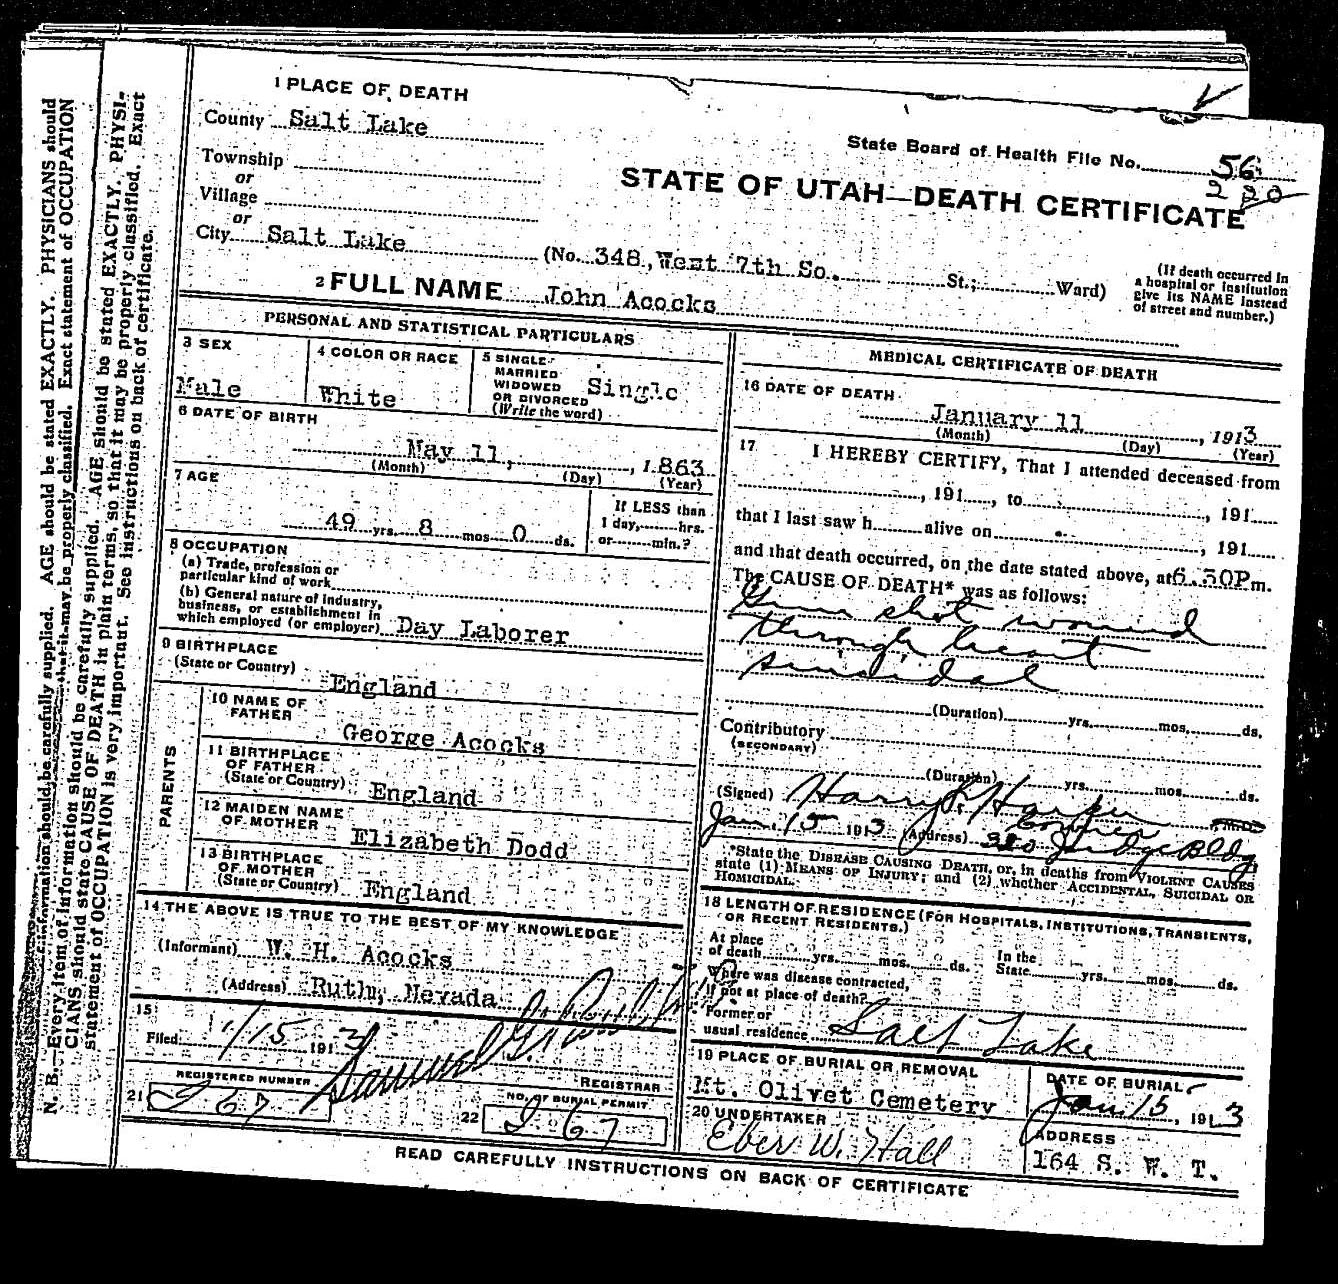 1 PLACE OF DEATH
County Salt Lake
State Board of Health File No. 56
220
Township
or
Village
or
City Salt Lake (No. 348, West 7th So. St.; Ward)
STATE OF UTAH—DEATH CERTIFICATE
(If death occurred in
a hospital or institution
give its NAME instead
of street and number.)
2 FULL NAME John Acocks
PERSONAL AND STATISTICAL PARTICULARS
3 SEX
Male
4 COLOR OR RACE
White
5 SINGLE
MARRIED
WIDOWED
OR DIVORCED
(Write the word)
Single
6 DATE OF BIRTH
May 11, , 1863
(Month) (Day) (Year)
7 AGE
49 yrs. 8 mos 0 ds.
If LESS than
1 day, hrs.
or min.?
8 OCCUPATION
(a) Trade, profession or
particular kind of work
(b) General nature of industry,
business, or establishment in
which employed (or employer) Day Laborer
9 BIRTHPLACE
(State or Country)
England
PARENTS
10 NAME OF
FATHER
George Acocks
11 BIRTHPLACE
OF FATHER
(State or Country) England
12 MAIDEN NAME
OF MOTHER
Elizabeth Dodd
13 BIRTHPLACE
OF MOTHER
(State or Country) England
14 THE ABOVE IS TRUE TO THE BEST OF MY KNOWLEDGE
(Informant) W. H. Acocks
(Address) Ruth, Nevada
15
Filed 1/15 1913 Samuel G.
REGISTRAR
21 REGISTERED NUMBER
267
22 NO. OF BURIAL PERMIT
267
MEDICAL CERTIFICATE OF DEATH
16 DATE OF DEATH
January 11 , 1913
(Month) (Day) (Year)
17 I HEREBY CERTIFY, That I attended deceased from
, 191 , to , 191
that I last saw h alive on , 191
and that death occurred, on the date stated above, at 6.30P m.
The CAUSE OF DEATH* was as follows:
Gun shot wound
through heart
suicidal
(Duration) yrs. mos. ds.
Contributory
(SECONDARY)
(Duration) yrs. mos. ds.
(Signed) Harry Harper
Coroner M.D.
Jan. 15 1913 (Address) 320 Judge Bldg
*State the DISEASE CAUSING DEATH, or, in deaths from VIOLENT CAUSES
state (1) MEANS OF INJURY; and (2) whether ACCIDENTAL, SUICIDAL OR
HOMICIDAL.
18 LENGTH OF RESIDENCE (FOR HOSPITALS, INSTITUTIONS, TRANSIENTS,
OR RECENT RESIDENTS.)
At place
of death yrs. mos. ds.
In the
State yrs. mos. ds.
Where was disease contracted,
if not at place of death?
Former or
usual residence Salt Lake
19 PLACE OF BURIAL OR REMOVAL
Mt. Olivet Cemetery
DATE OF BURIAL
Jan 15 , 1913
20 UNDERTAKER
Eber W. Hall
ADDRESS
164 S. W. T.
READ CAREFULLY INSTRUCTIONS ON BACK OF CERTIFICATE
N. B.—Every item of information should be carefully supplied. AGE should be stated EXACTLY. PHYSICIANS should
CIANS should state CAUSE OF DEATH in plain terms, so that it may be properly classified. Exact statement of OCCUPATION
should be carefully supplied. AGE should be stated EXACTLY. PHYSI-
statement of OCCUPATION is very important. See instructions on back of certificate.